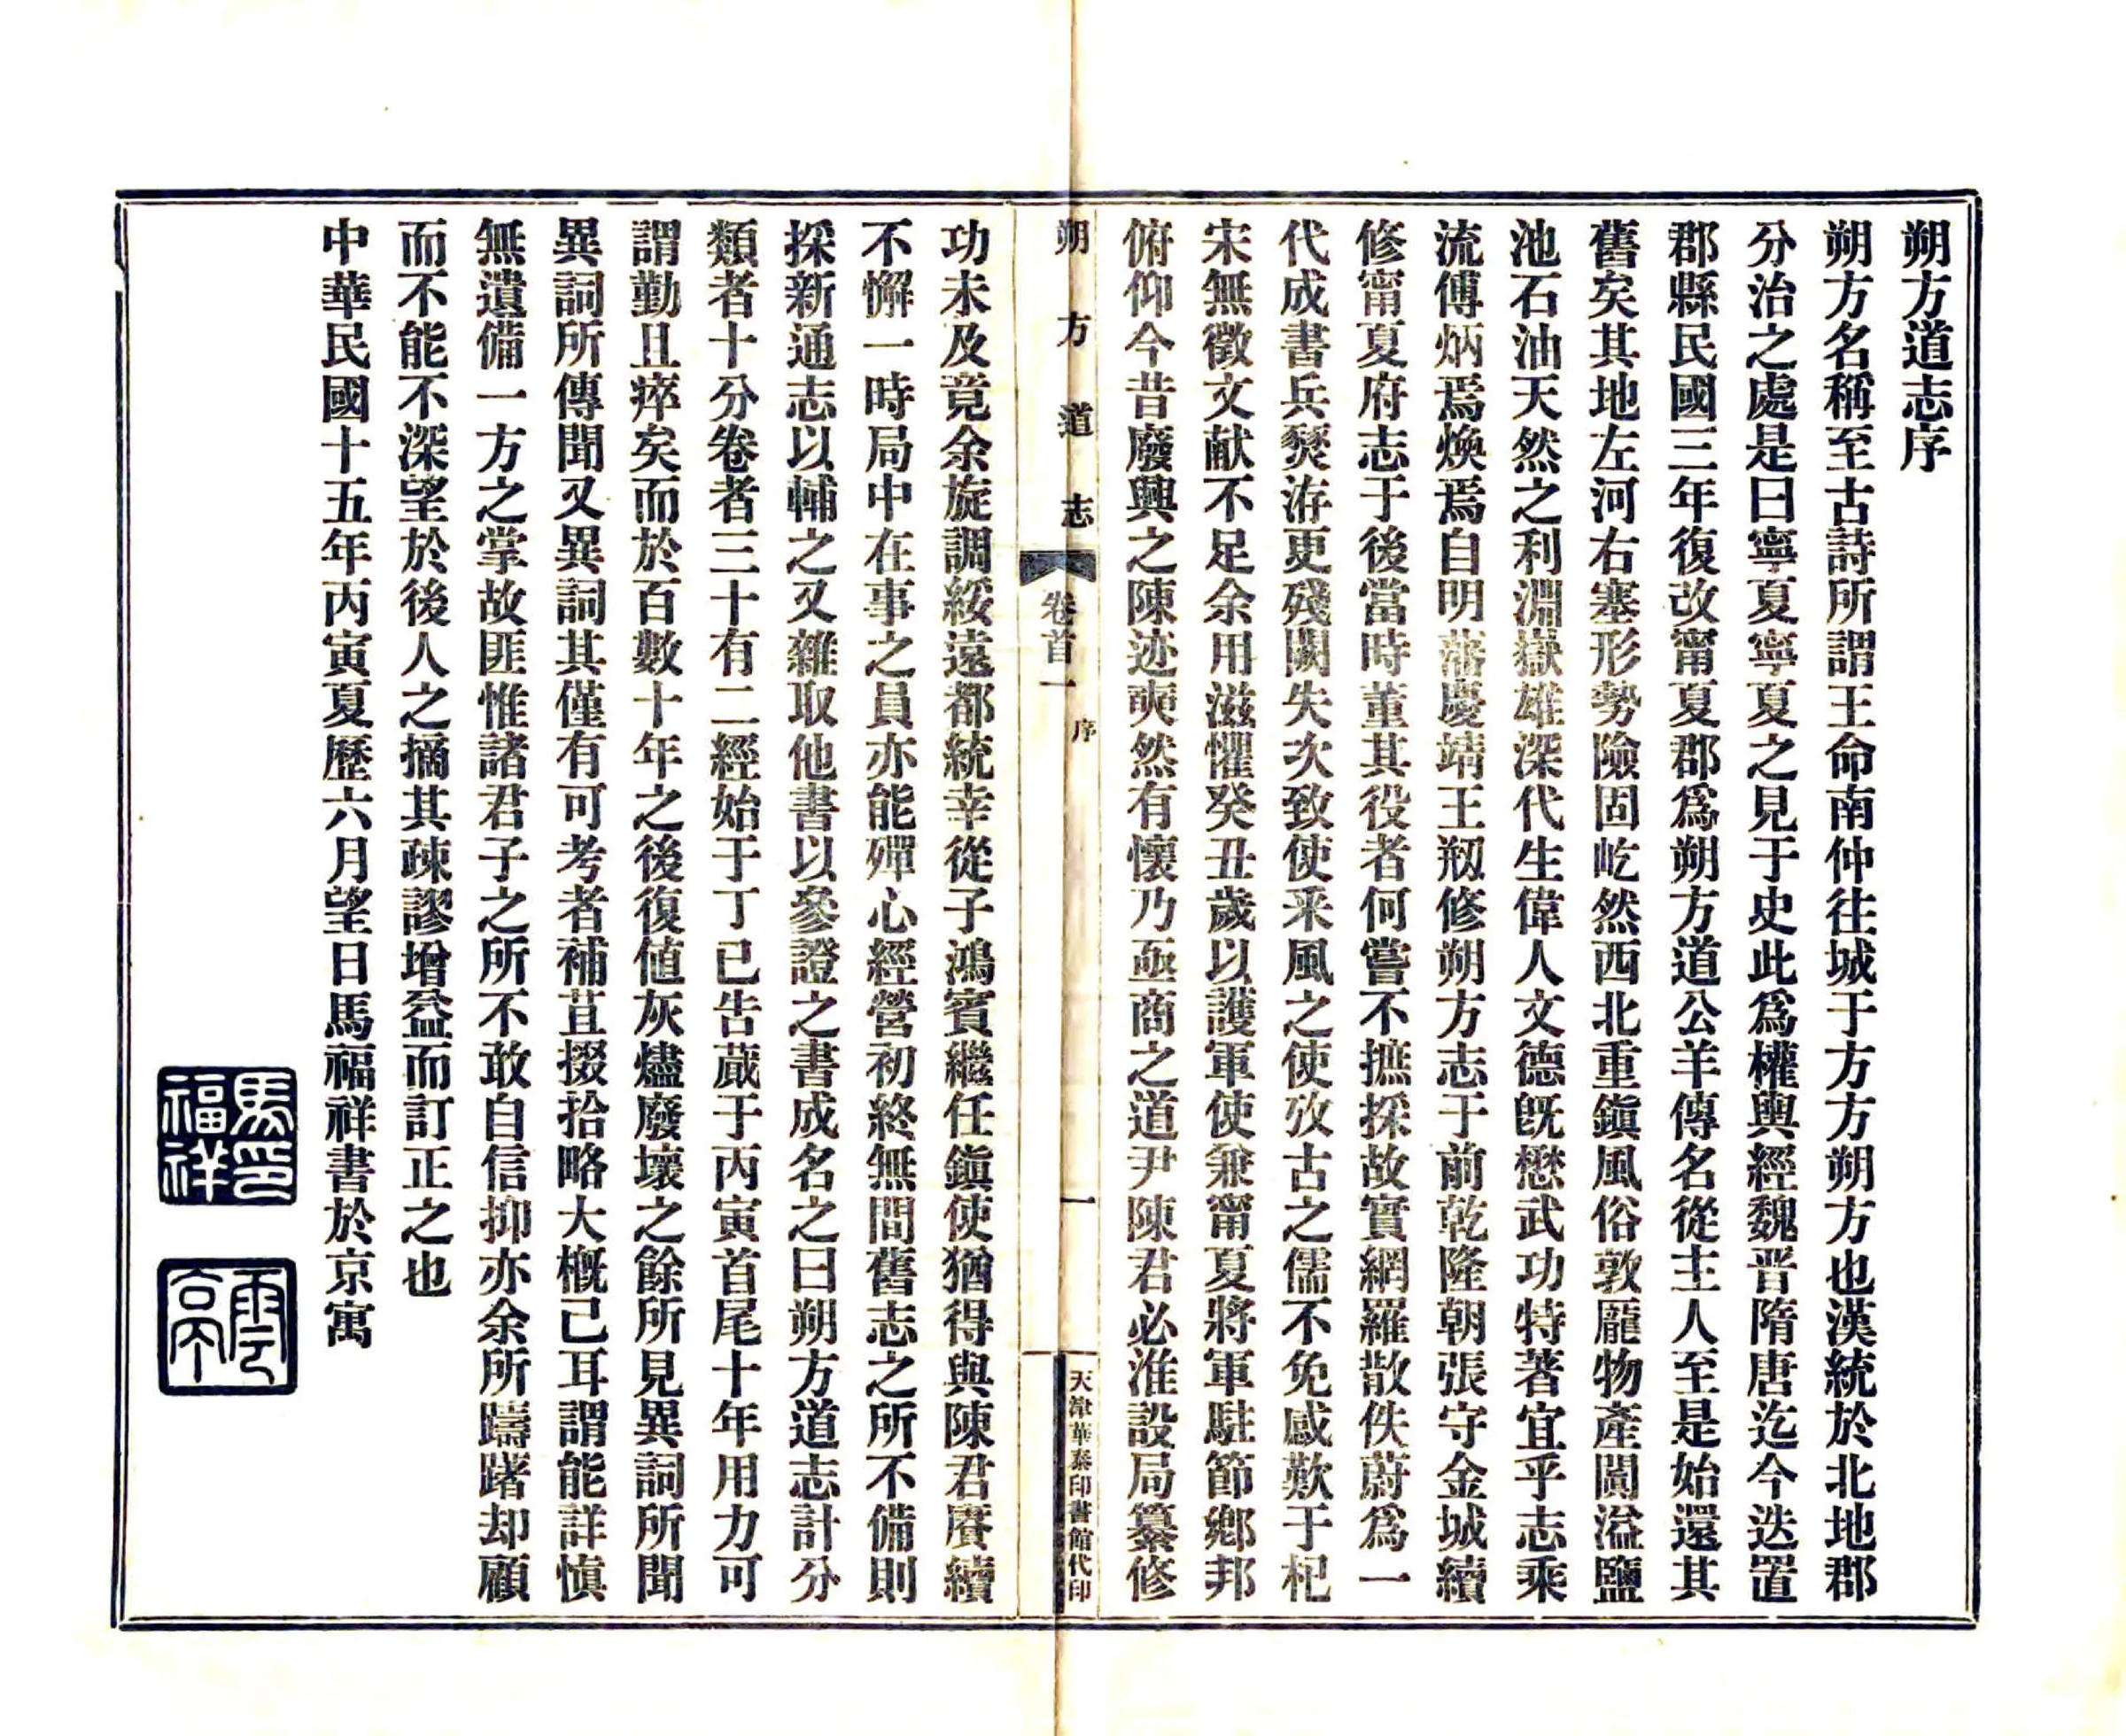 朔方道志序
朔方名稱至古詩所謂王命南仲往城于方方朔方也漢統於北地郡
分治之處是曰寧夏寧夏之見于史此爲權輿經魏晋隋唐迄今迭置
郡縣民國三年復改甯夏郡爲朔方道公羊傳名從主人至是始還其
舊矣其地左河右塞形勢險固屹然西北重鎭風俗敦龐物產闐溢鹽
池石油天然之利淵嶽雄深代生偉人文德旣懋武功特著宜乎志乘
流傳炳焉煥焉自明藩慶靖王剏修朔方志于前乾隆朝張守金城續
修甯夏府志于後當時董其役者何嘗不摭採故實網羅散佚蔚爲一
代成書兵燹洊更殘闕失次致使釆風之使攷古之儒不免感歎于杞
宋無徵文献不足余用滋懼癸丑歲以護軍使兼甯夏將軍駐節鄉邦
俯仰今昔廢興之陳迹奭然有懷乃亟商之道尹陳君必淮設局纂修
朔方道志
卷首一
序
一
天津華泰印書館代印
功未及竟余旋調綏遠都統幸從子鴻賓繼任鎭使猶得與陳君賡續
不懈一時局中在事之員亦能殫心經營初終無間舊志之所不備則
採新通志以輔之又雜取他書以參證之書成名之曰朔方道志計分
類者十分卷者三十有二經始于丁巳告蕆于丙寅首尾十年用力可
謂勤且瘁矣而於百數十年之後復值灰燼廢壞之餘所見異詞所聞
異詞所傳聞又異詞其僅有可考者補苴掇拾略大槪已耳謂能詳愼
無遺備一方之掌故匪惟諸君子之所不敢自信抑亦余所躊躇却顧
而不能不深望於後人之摘其疎謬增益而訂正之也
中華民國十五年丙寅夏歷六月望日馬福祥書於京寓
馬福祥印
雲亭